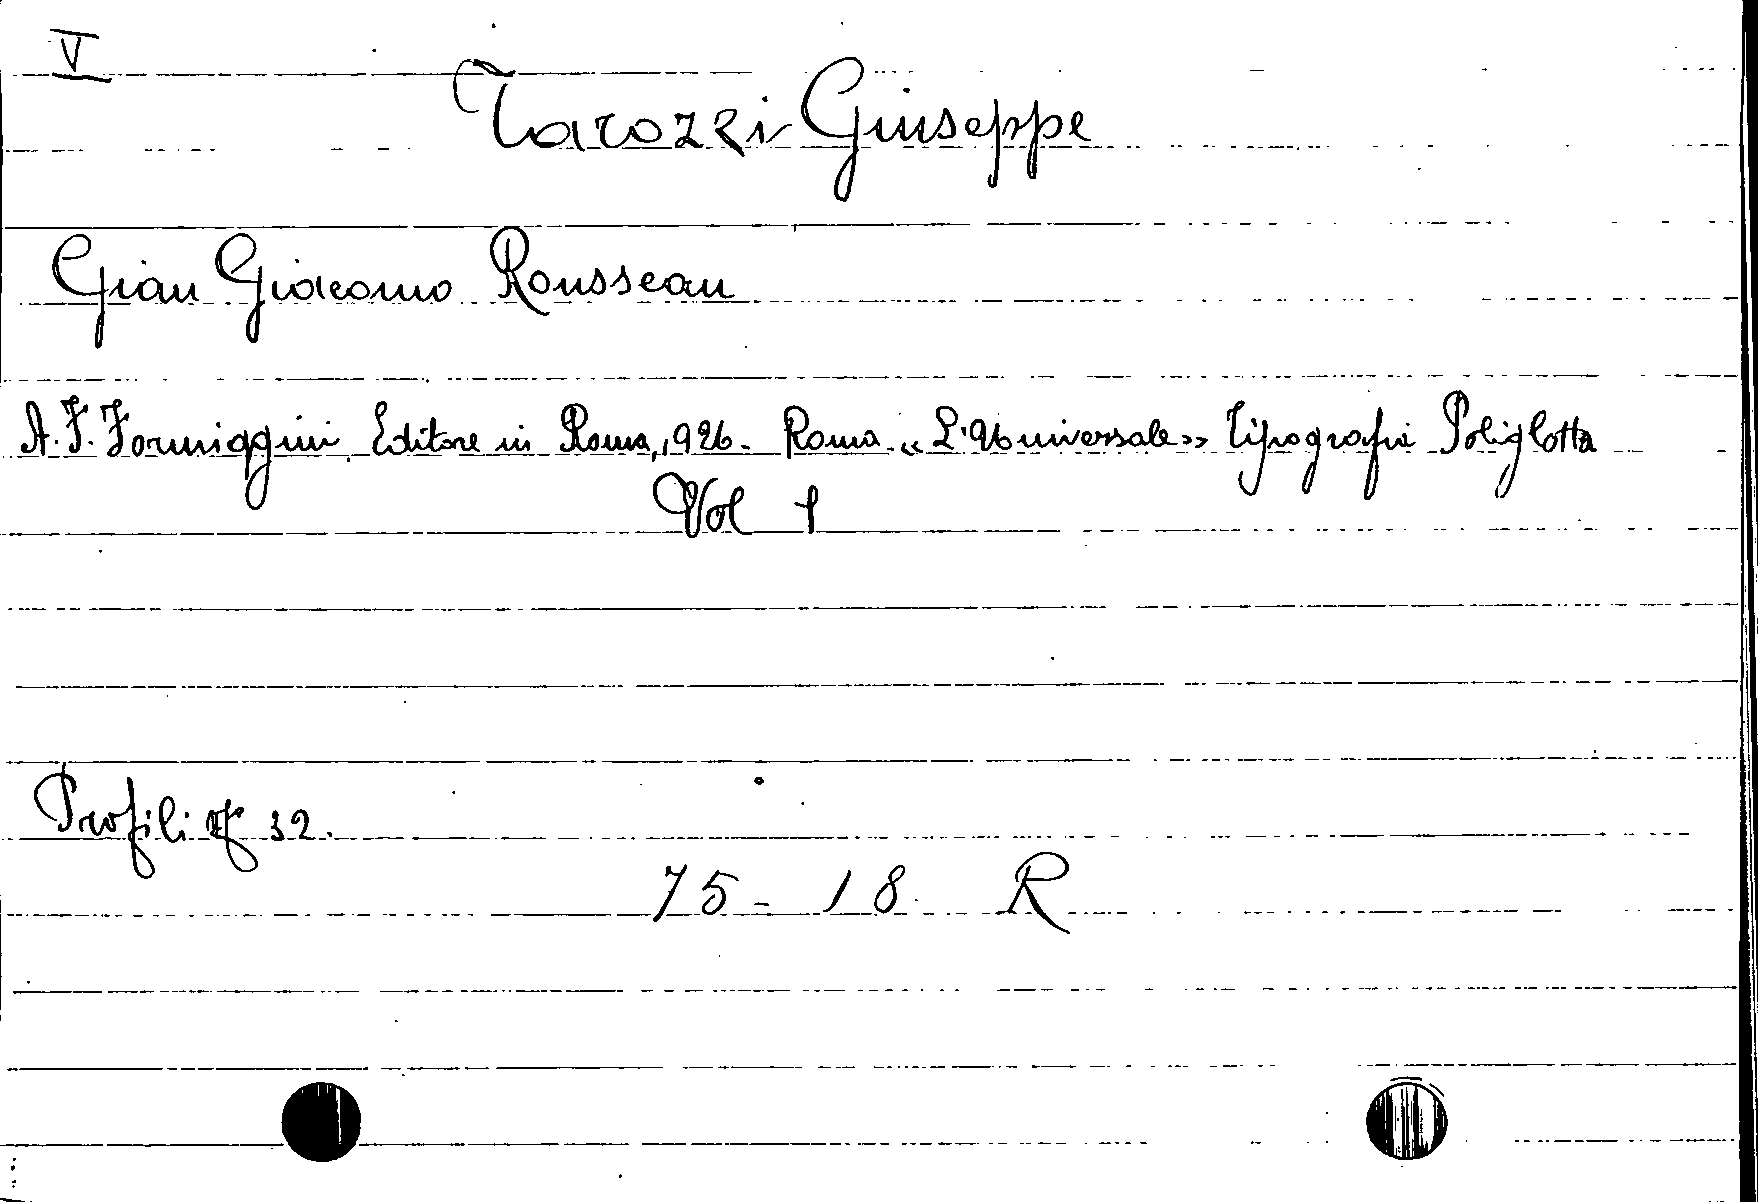 V
Tarozzi Giuseppe
Gian Giacomo Rousseau
A. F. Formiggini Editore in Roma, 1926. Roma «L'Universale» Tipografia Poliglotta
Vol 1
Profili 32.
75 - 18 R